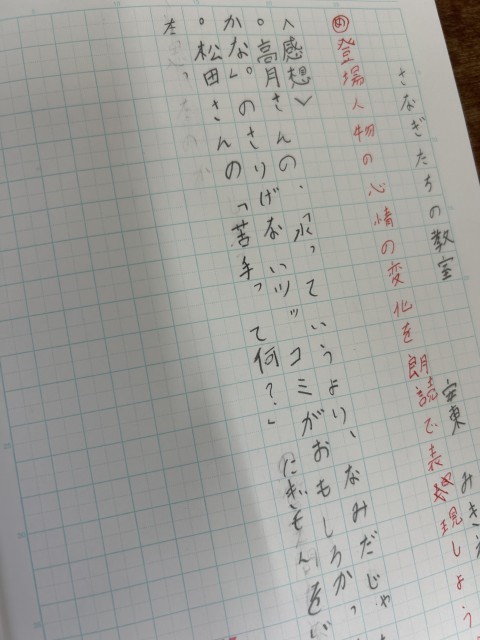 さなぎたちの教室 安東 みきえ
め 登場人物の心情の変化を朗読で表現しよう
〈感想〉
。高月さんの、「氷っていうより、なみだじゃ
かな」。のさりげないツッコミがおもしろかっ
。松田さんの「苦手って何?」にぎもんを